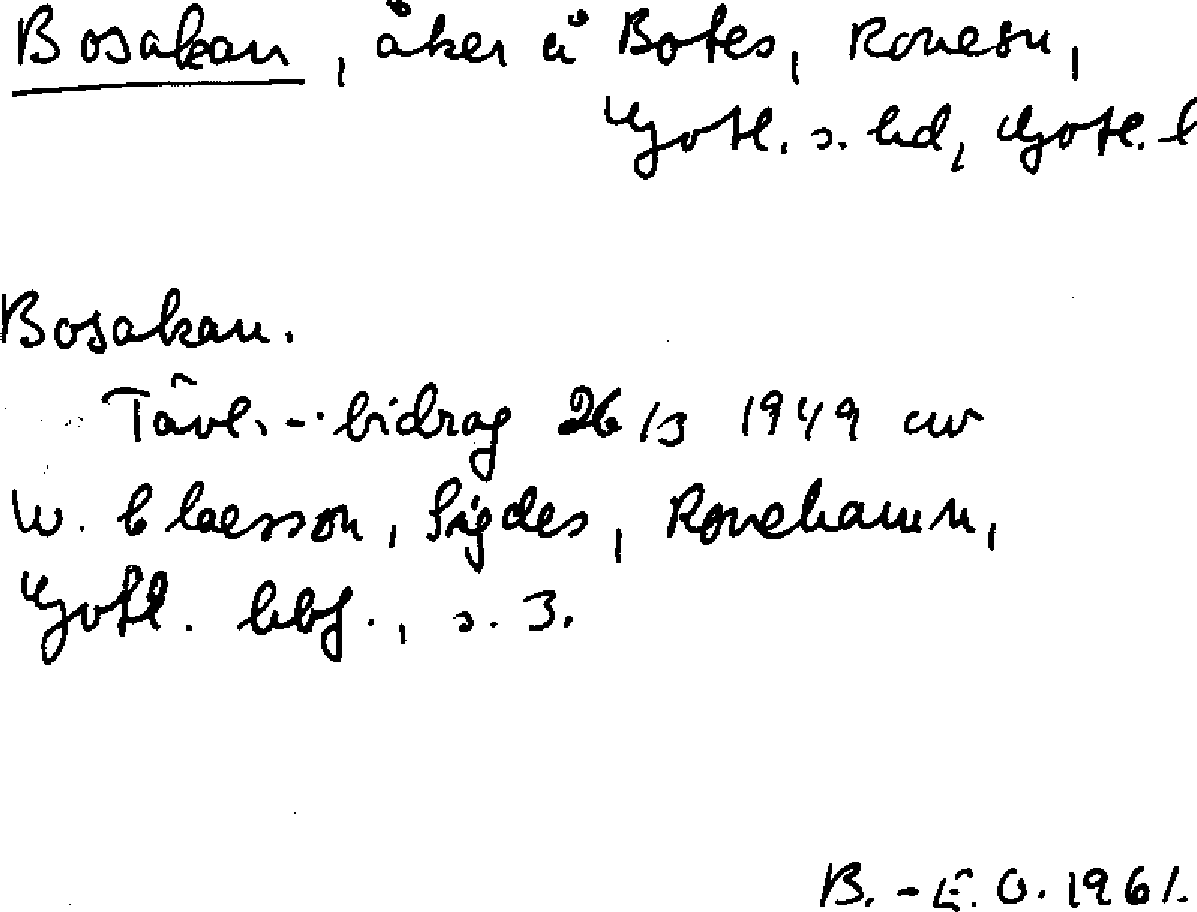 Bosakan, åker å Botes, Rone sn,
Gotl. s. hd, Gotl. l
Bosakan.
Tävl.-bidrag 26/3 1949 av
W. Claesson, Sigdes, Ronehamn,
Gotl. hbf., s. 3.
B.-E. O. 1961.